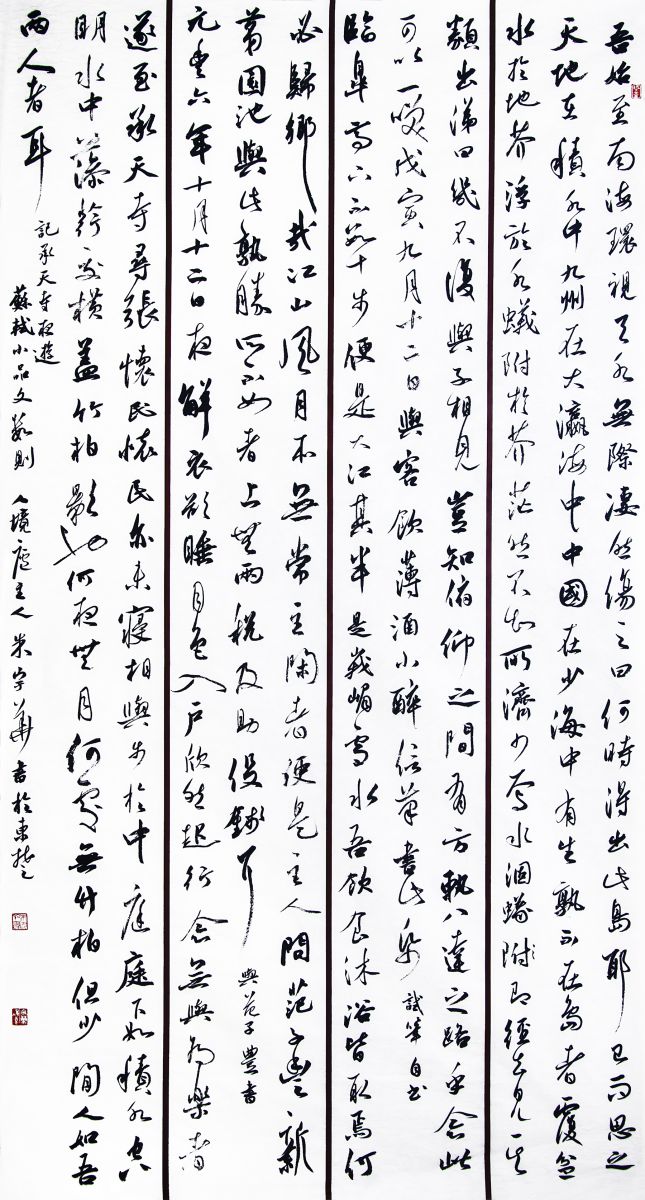 吾始至南海環視天水無際淒然傷之曰何時得出此島耶已而思之
天地在積水中九州在大瀛海中中國在少海中有生孰不在島者覆盆
水於地芥浮於水蟻附於芥茫然不知所濟少焉水涸蟻附即徑去見其
類出涕曰幾不復與子相見豈知俯仰之間有方軌八達之路乎念此
可以一笑戊寅九月十二日與客飲薄酒小醉信筆書此紙 試筆自書
臨皋亭下不數十步便是大江其半是峨嵋雪水吾飲食沐浴皆取焉何
必歸鄉哉江山風月本無常主閑者便是主人問范子豐新
第園池與此孰勝所不如者上無兩稅及助役錢耳 與范子豐書
元豐六年十月十二日夜解衣欲睡月色入戶欣然起行念無與為樂者
遂至承天寺尋張懷民懷民亦未寢相與步於中庭庭下如積水空
明水中藻荇交橫蓋竹柏影也何夜無月何處無竹柏但少閒人如吾
兩人者耳 記承天寺夜遊
蘇軾小品文數則 人境廬主人朱宇華書於東楚